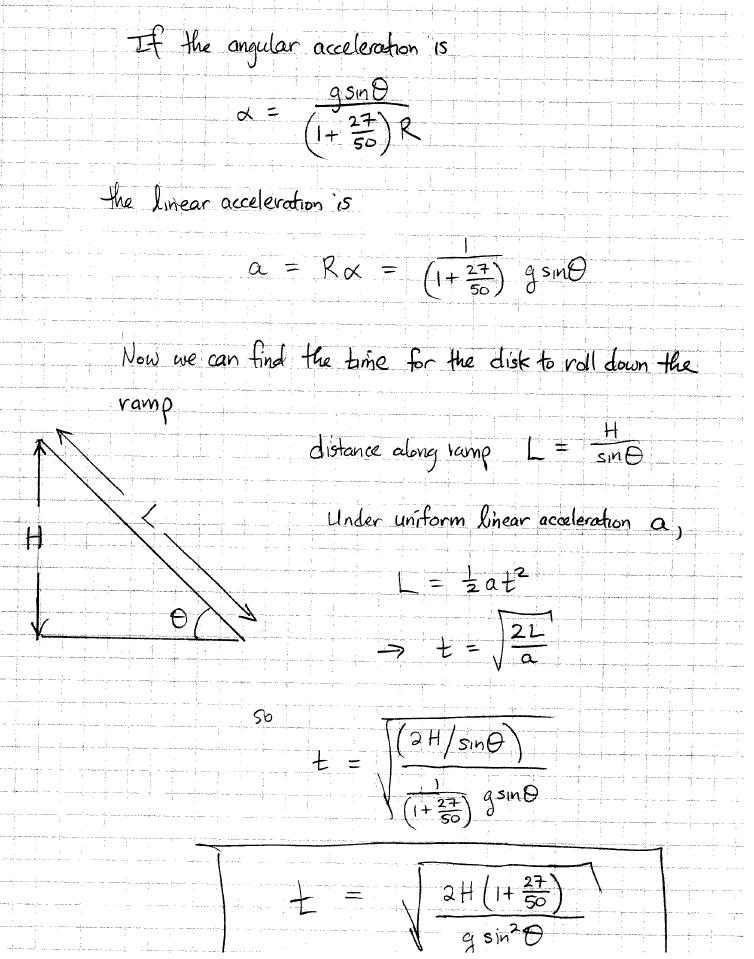 If the angular acceleration is
α = g sinθ / (1 + 27/50) R
the linear acceleration is
a = Rα = 1 / (1 + 27/50) g sinθ
Now we can find the time for the disk to roll down the
ramp
distance along ramp L = H / sinθ
L
H
θ
Under uniform linear acceleration a,
L = ½ at²
→ t = √(2L / a)
so
t = √((2H/sinθ) / (1 / (1 + 27/50) g sinθ))
t = √(2H (1 + 27/50) / g sin²θ)